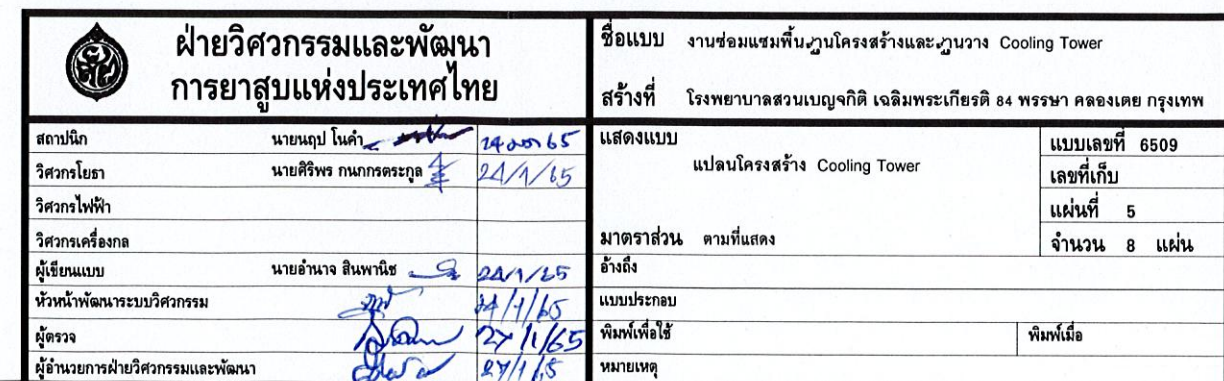 ฝ่ายวิศวกรรมและพัฒนา
การยาสูบแห่งประเทศไทย
ชื่อแบบ งานซ่อมแซมพื้นฐานโครงสร้างและฐานวาง Cooling Tower
สร้างที่ โรงพยาบาลสวนเบญจกิติ เฉลิมพระเกียรติ 84 พรรษา คลองเตย กรุงเทพ
สถาปนิก นายนฤป โนคำ
วิศวกรโยธา นายศิริพร กนกกรตระกูล 24/1/65
วิศวกรไฟฟ้า
วิศวกรเครื่องกล
ผู้เขียนแบบ นายอำนาจ สินพานิช 24/1/65
หัวหน้าพัฒนาระบบวิศวกรรม 24/1/65
ผู้ตรวจ 27/1/65
ผู้อำนวยการฝ่ายวิศวกรรมและพัฒนา
แสดงแบบ
แปลนโครงสร้าง Cooling Tower
มาตราส่วน ตามที่แสดง
แบบเลขที่ 6509
เลขที่เก็บ
แผ่นที่ 5
จำนวน 8 แผ่น
อ้างถึง
แบบประกอบ
พิมพ์เพื่อใช้ พิมพ์เมื่อ
หมายเหตุ